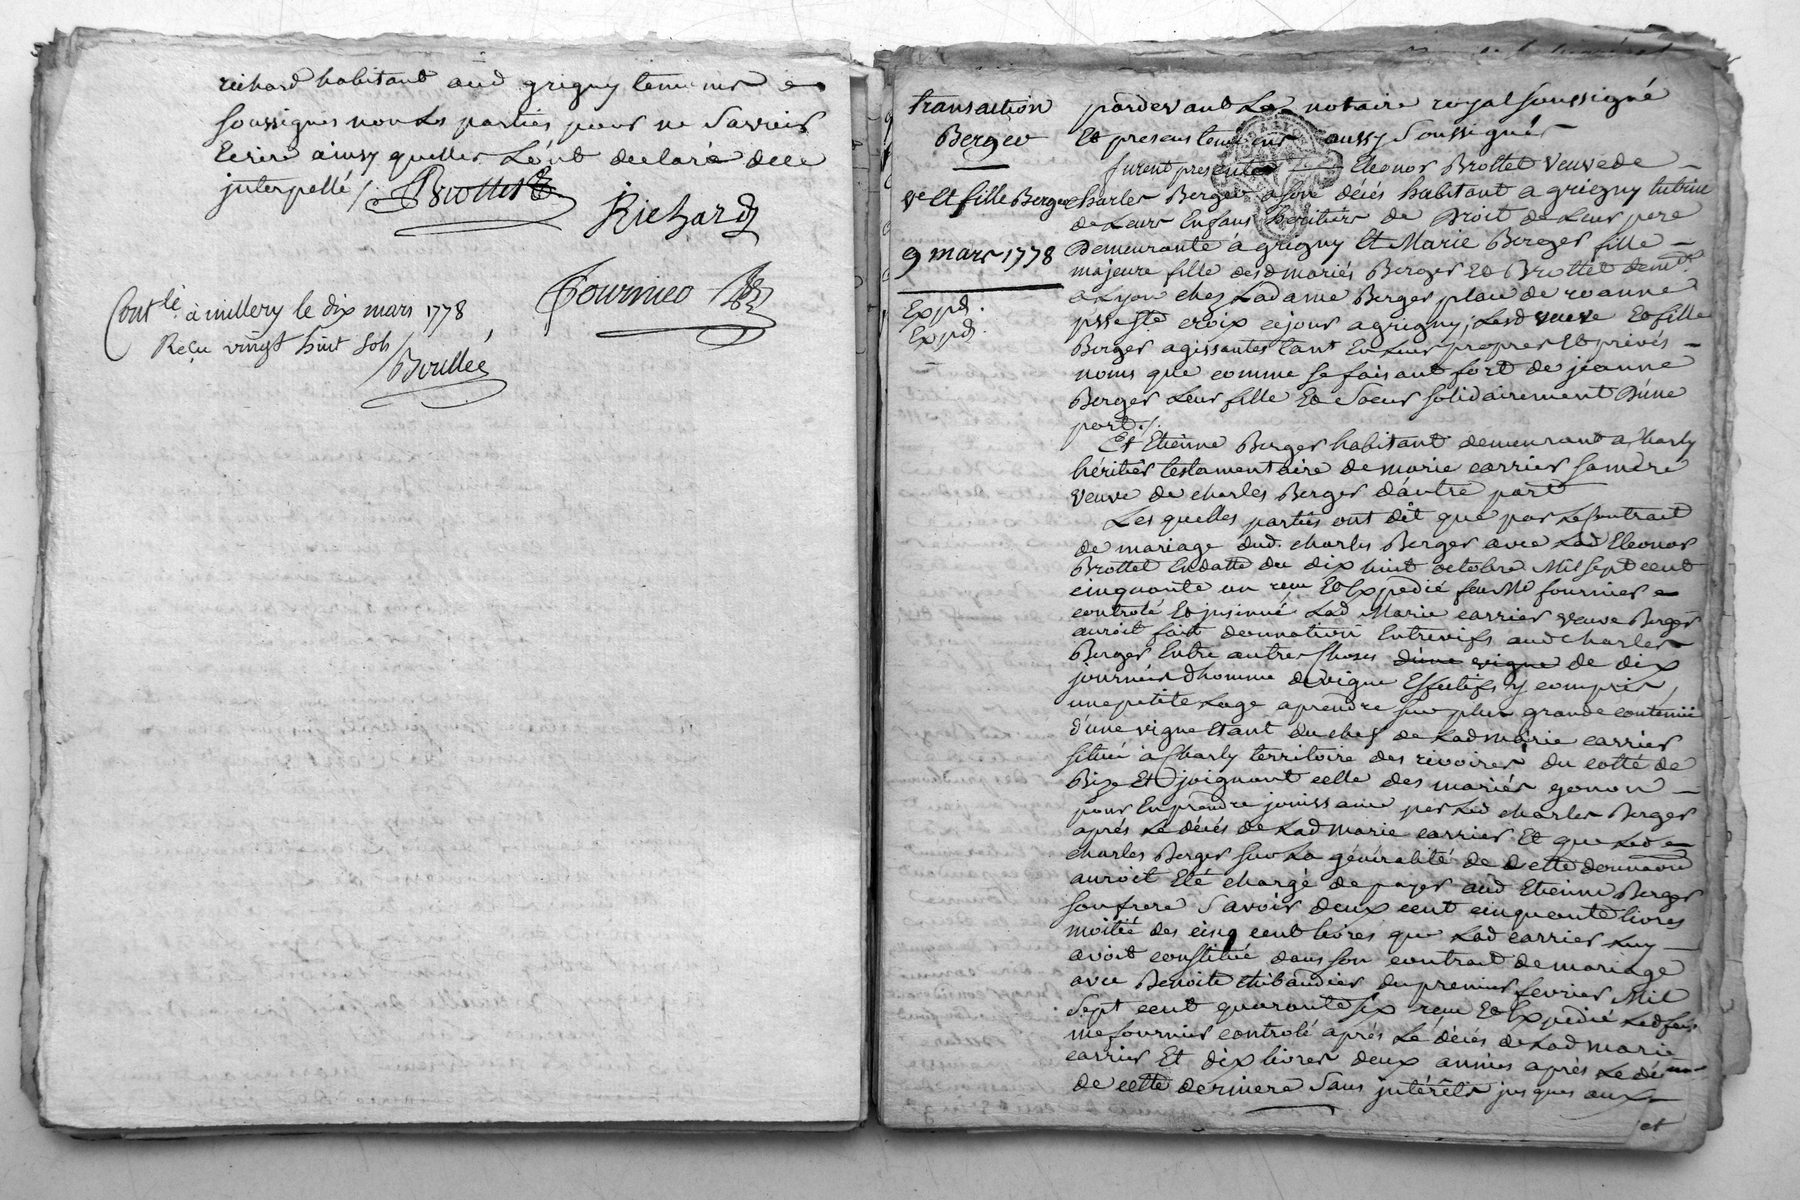 richard habitant aud grigny temoins
soussignes non les parties pour ne scavoir
Ecrire ainsy quelles Lont declaré de ce
interpellé /. Brottet
Richard
Fournier
Contlé à millery le dix mars 1778
Reçu vingt huit sols
Boullée
transaction
Berger
ve Et fille Berger
9 mars 1778
Expd.
Expd
pardevant Le notaire royal soussigné
Et presens temoins aussy soussignés
furent presentes Eleonor Brottet veuve de
charles Berger a son décés habitant a grigny tutrice
de Leurs Enfans heritiers de Droit de Leur pere
Demeurante á grigny Et Marie Berger fille
majeure fille desd mariés Berger Et Brottet demte
a Lyon chez Ladame Berger place de roanne
psse Ste croix cejour a grigny, Lesd veuve Et fille
Berger agissantes tant En Leur propres Et privés
noms que comme se faisant fort de jeanne
Berger Leur fille Et Soeur solidairement D'une
part /.
Et Etienne Berger habitant demeurant a Charly
héritier testamentaire de marie carrier sa mere
veuve de charles Berger d'autre part
Les quelles parties ont dit que par Le Contrait
de mariage dud. charles Berger avec Lad Eleonor
Brottet En datte du dix huit octobre Mil sept cent
cinquante un reçu Et Expedié feu Me fournier
controlé Et jnsinué Lad Marie carrier veuve Berger
auroit fait donnation Entrevifs aud charles
Berger Entre autres Choses d'une vigne de dix
journées d'homme de vigne Effectifs y compris
une petite Loge aprendre sur plus grande contenüe
d'une vigne Etant du chef de Lad marie carrier
située à Charly territoire des rivoires du cotté de
Bize Et joignant celle des mariés gonon
pour En prendre jouissance par Led charles Berger
aprés Le décés de Lad marie carrier Et que Led
charles Berger sur La généralité de de cette donnaon
auroit Eté chargé de payer aud Etienne Berger
son frere Savoir deux cent cinquante livres
moitié des cinq cent livres que Lad carrier Luy
avoit constitué dans son contrait de mariage
avec Benoite thibaudier du premier fevrier Mil
Sept cent quarante six reçu Et Expedié Led feu
me fournier controlé aprés Le décés de Lad marie
carrier Et dix livres deux années aprés Le dé
de cette derniere Sans jntérêts jusques aux
et